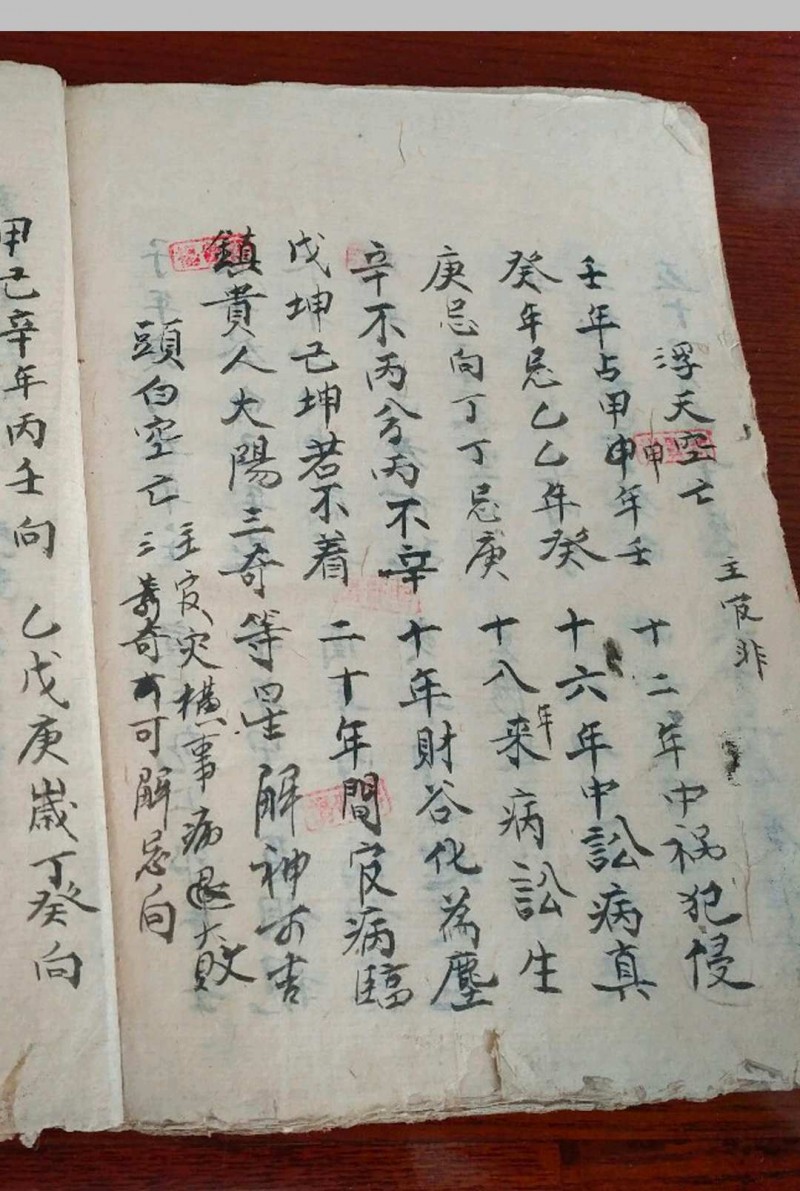 浮天空亡 主官非
壬年占甲申年壬 十二年中祸犯侵
申
癸年忌乙乙年癸 十六年中訟病真
庚忌向丁丁忌庚 十八年来病訟生
辛不丙兮丙不辛 十年財谷化為塵
戊坤己坤若不着 二十年間官病臨
鎮貴人太陽三奇等星 解神方吉
頭白空亡 主官災橫事病退大敗
三奇可解忌向
甲己辛年丙壬向 乙戊庚歲丁癸向